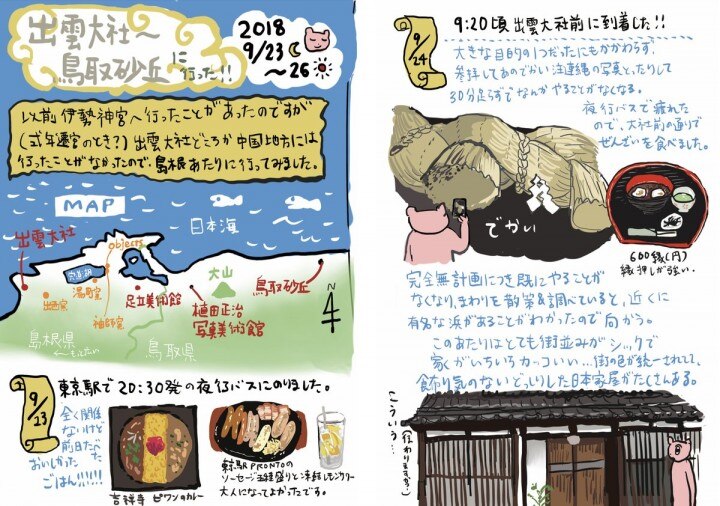 出雲大社〜
鳥取砂丘に行った!!
2018
9/23
〜26
以前伊勢神宮へ行ったことがあったのですが
(式年遷宮のとき?)出雲大社どころか中国地方には
行ったことがなかったので、島根あたりに行ってみました。
MAP
日本海
出雲大社
objects
宍道湖
湯町窯
出西窯
袖師窯
足立美術館
大山
植田正治
写真美術館
鳥取砂丘
N
島根県
鳥取県
9/23
東京駅で20:30発の夜行バスにのりました。
全く関係
ないけど
前日たべた
おいしかった
ごはん!!!!!
吉祥寺 ピワンのカレー
東京駅PRONTOの
ソーセージ5種盛りと凍結レモンサワー
大人になってよかったです。
9/24
9:20頃出雲大社前に到着した!!
大きな目的の1つだったにもかかわらず、
参拝してあのでかい注連縄の写真とったりして
30分足らずでなんかやることがなくなる。
夜行バスで疲れた
ので、大社前の通りで
ぜんざいを食べました。
でかい
600縁(円)
縁押しが強い。
完全無計画につき既にやることが
なくなり、まわりを散策&調べていると、近くに
有名な浜があることがわかったので向かう。
このあたりはとても街並みがシックで
家がいちいちカッコいい…街の色が統一されてて、
飾り気のないどっしりした日本家屋がたくさんある。
こういう…
(伝わりますか?)